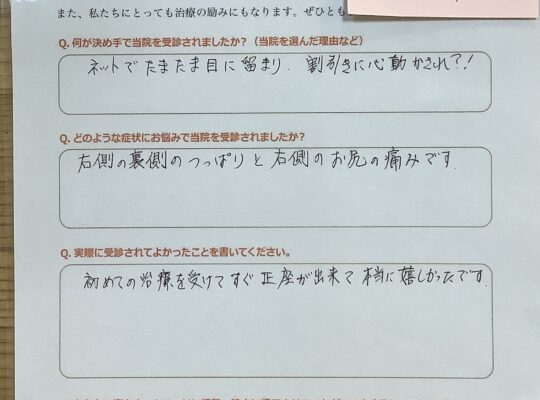 また、私たちにとっても治療の励みにもなります。ぜひとも
Q. 何が決め手で当院を受診されましたか？（当院を選んだ理由など）
ネットでたまたま目に留まり、割引きに心動かされ?!
Q. どのような症状にお悩みで当院を受診されましたか？
右側の裏側のつっぱりと右側のお尻の痛みです
Q. 実際に受診されてよかったことを書いてください。
初めての治療を受けてすぐ正座が出来て本当に嬉しかったです。